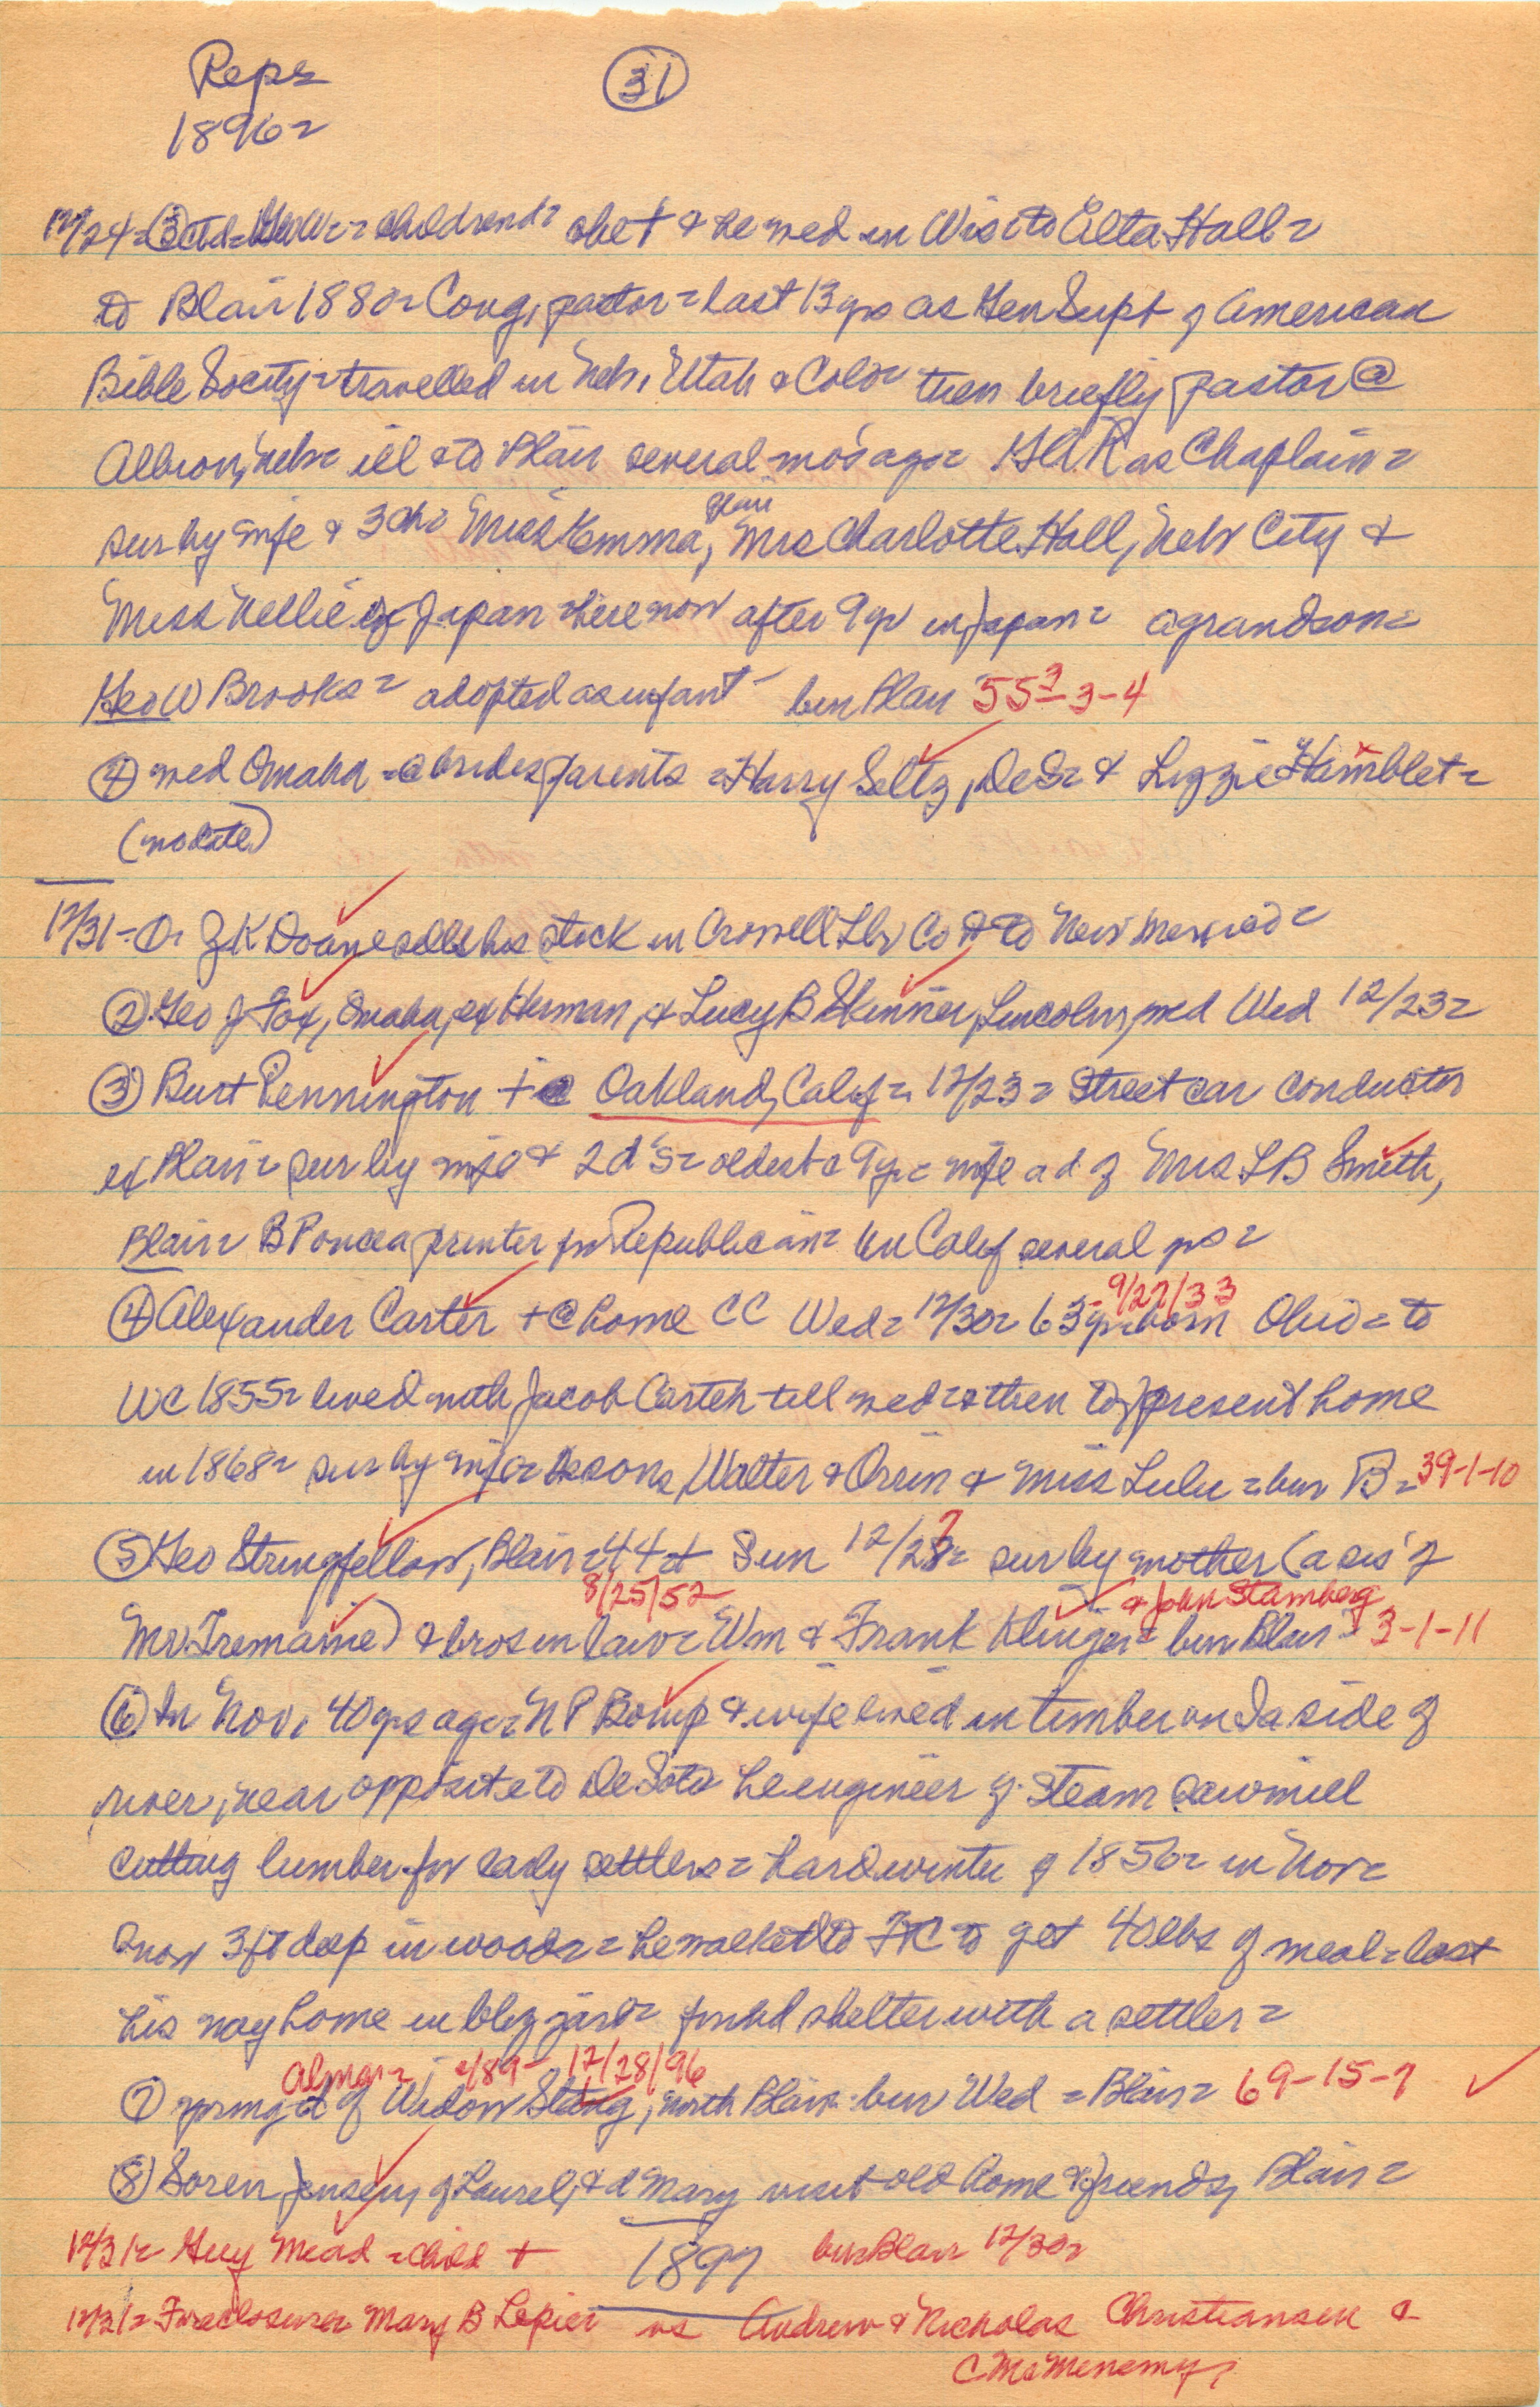 Reps
(31)
1896=
12/24= (3) Ctd= Geo W= = children d= she + & he med in Wis= to Etta Hall=
to Blair 1880= Cong, pastor= last 13 yrs as Gen Supt of American
Bible Society= travelled in Neb, Utah & Colo= then briefly pastor @
Albion, Neb= ill & to Blair several mos ago= GAR as Chaplain=
Blair
sur by wife & 3 ch= Miss Emma, Mrs Charlotte Hall, Neb City &
Miss Nellie of Japan = here now after 9 yr in Japan= a grandson=
Geo W Brooks= adopted as infant - bur Blair 55-3-4
(4) med Omaha = @ brides parents = Harry Seltz, DeS= & Lizzie Hamblet=
(no date)
12/31= Z K Doane sells his stock in Crowell Lbr Co & to New Mexico=
(2) Geo J Fox, Omaha, ex Herman, & Lucy B Skinner, Lincoln, med Wed 12/23=
(3) Burt Pennington + @ Oakland, Calif= 12/23= Street car conductor
ex Blair= sur by wife & 2 d's= oldest @ 9 yr= wife a d of Mrs L B Smith,
Blair= B P once a printer for Republican= in Calif several yrs=
9/27/33
(4) Alexander Carter + @ home CC Wed= 12/30= 63 yr= born Ohio= to
WC 1855= lived with Jacob Carter till med= & then to present home
in 1868= sur by wife= sons, Walter & Orrin & Miss Lulu = bur B= 39-1-10
(5) Geo Stringfellow, Blair= 44 + Sun 12/27= sur by mother (a sis' of
8/25/52 & John Stamberg
Mr. Tremaine) & bros in law= Wm & Frank Klinger= bur Blair= 3-1-11
(6) In Nov, 40 yrs ago= N P Boump & wife lived in timber on Ia side of
river, near opposite to DeSoto he engineer of steam sawmill
cutting lumber for early settlers= hard winter of 1856= in Nov=
snow 3 ft deep in woods= he walked to FtC to get 40 lbs of meal= lost
his way home in blizzard= found shelter with a settler=
Alma= /89- 12/28/96
(7) youngest d of Widow Stang, north Blair bur Wed = Blair= 69-15-7
(8) Soren Jensen, of Laurel, & d Mary visit old home & friends, Blair=
12/31= Guy Mead = child + bur Blair 12/30=
1897
12/31= Foreclosure= Mary B Lepier vs Andrew & Nicholas Christiansen &
C McMenemy,